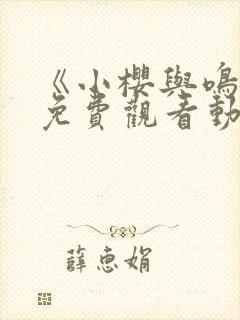 《小櫻與鳴
免費觀看動
薛惠娟